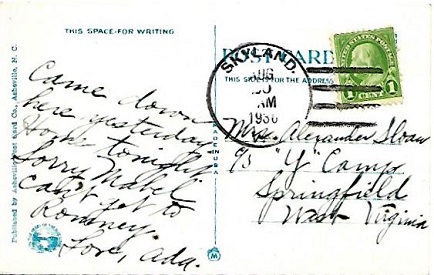 THIS SPACE FOR WRITING
Came down
here, yesterday
Home tonight
Sorry Mabel
can't get to
Romney.
Love, Ada.
Published by Asheville Post Card Co., Asheville, N. C.
MADE IN U.S.A.
POST CARD
THIS SIDE IS FOR THE ADDRESS
SKYLAND
AUG
AM
1930
UNITED STATES POSTAGE
1 CENT 1
Mrs. Alexander Sloan
c/o "Y" Camp
Springfield
West Virginia